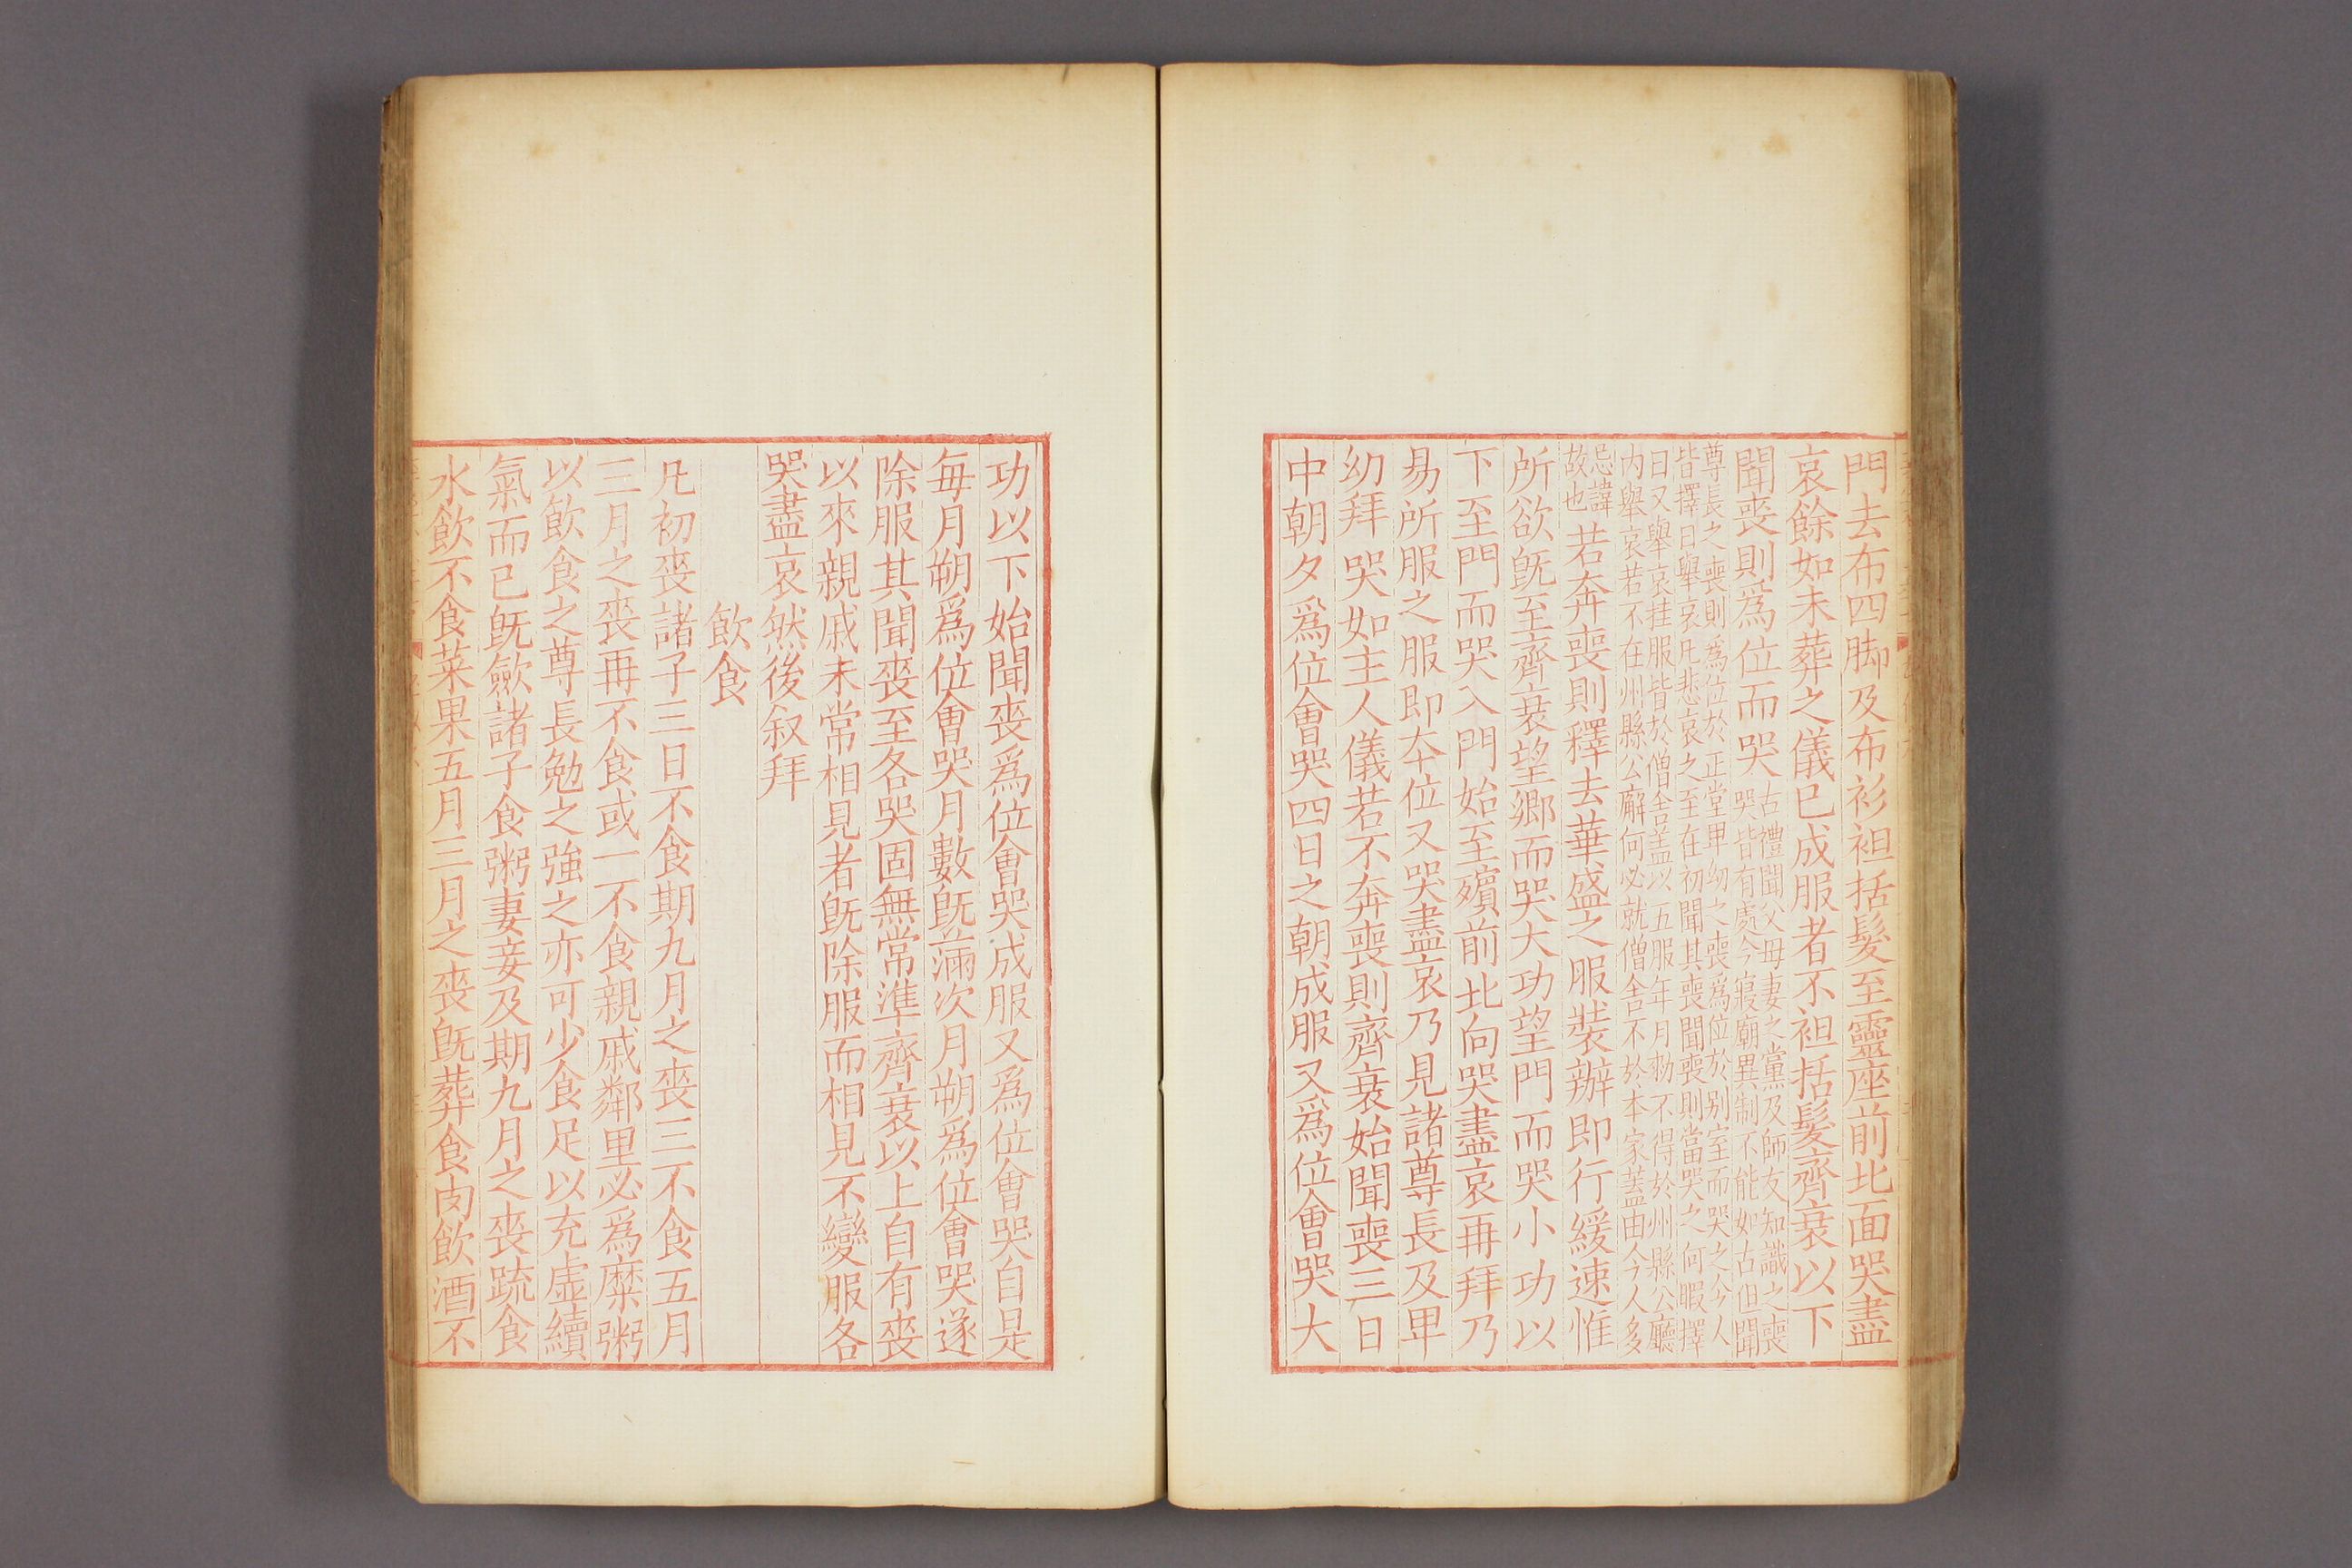 門去布四脚及布衫袒括髮至靈座前北面哭盡
哀餘如未葬之儀已成服者不袒括髮齊衰以下
聞喪則爲位而哭
古禮聞父母妻之黨及師友知識之喪
哭皆有處今寢廟異制不能如古但聞
尊長之喪則爲位於正堂卑幼之喪爲位於别室而哭之今人
皆擇日舉哀凡悲哀之至在初聞其喪聞喪則當哭之何暇擇
日又舉哀挂服皆於僧舍盖以五服年月勑不得於州縣公廳
内舉哀若不在州縣公廨何必就僧舎不於本家蓋由今人多
忌諱
故也
若奔喪則釋去華盛之服裝辦即行緩速惟
所欲旣至齊衰望鄉而哭大功望門而哭小功以
下至門而哭入門始至殯前北向哭盡哀再拜乃
易所服之服即夲位又哭盡哀乃見諸尊長及卑
幼拜哭如主人儀若不奔喪則齊衰始聞喪三日
中朝夕爲位會哭四日之朝成服又爲位會哭大
功以下始聞喪爲位會哭成服又爲位會哭自是
每月朔爲位會哭月數旣滿次月朔爲位會哭遂
除服其聞喪至各哭固無常準齊衰以上自有喪
以來親戚未常相見者旣除服而相見不變服各
哭盡哀然後叙拜
飲食
凡初喪諸子三日不食期九月之喪三不食五月
三月之喪再不食或一不食親戚鄰里必爲糜粥
以飲食之尊長勉之強之亦可少食足以充虛續
氣而已旣歛諸子食粥妻妾及期九月之喪疏食
水飲不食菜果五月三月之喪旣葬食肉飲酒不